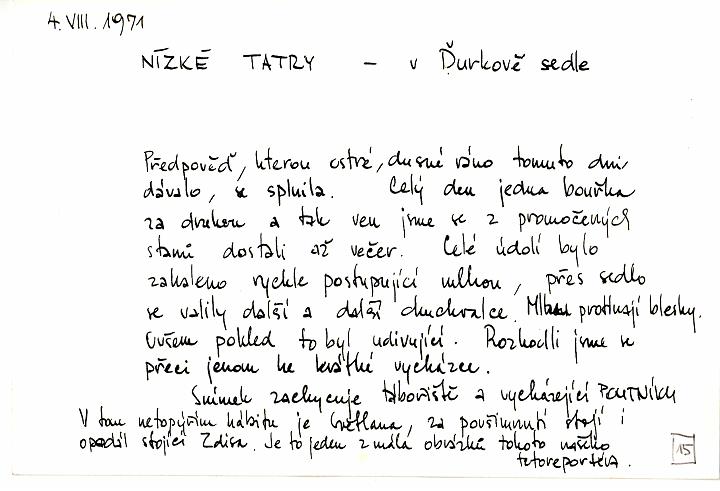 4. VIII. 1971
NÍZKÉ TATRY – v Ďurkově sedle
Předpověď, kterou ostré, dusné ráno tomuto dni
dávalo, se splnila. Celý den jedna bouřka
za druhou a tak ven jsme se z promočených
stanů dostali až večer. Celé údolí bylo
zahaleno rychle postupující mlhou, přes sedlo
se valily další a další chuchvalce. Mlhou protínají blesky.
Ovšem pohled to byl udivující. Rozhodli jsme se
přeci jenom ke krátké vycházce.
Snímek zachycuje tábořiště a vycházející POUTNÍKY
V tom netopýřím hábitu je Světlana, za povšimnutí stojí i
opodál stojící Zdisa. Je to jeden z mála obrázků tohoto našeho
fotoreportéra.
15